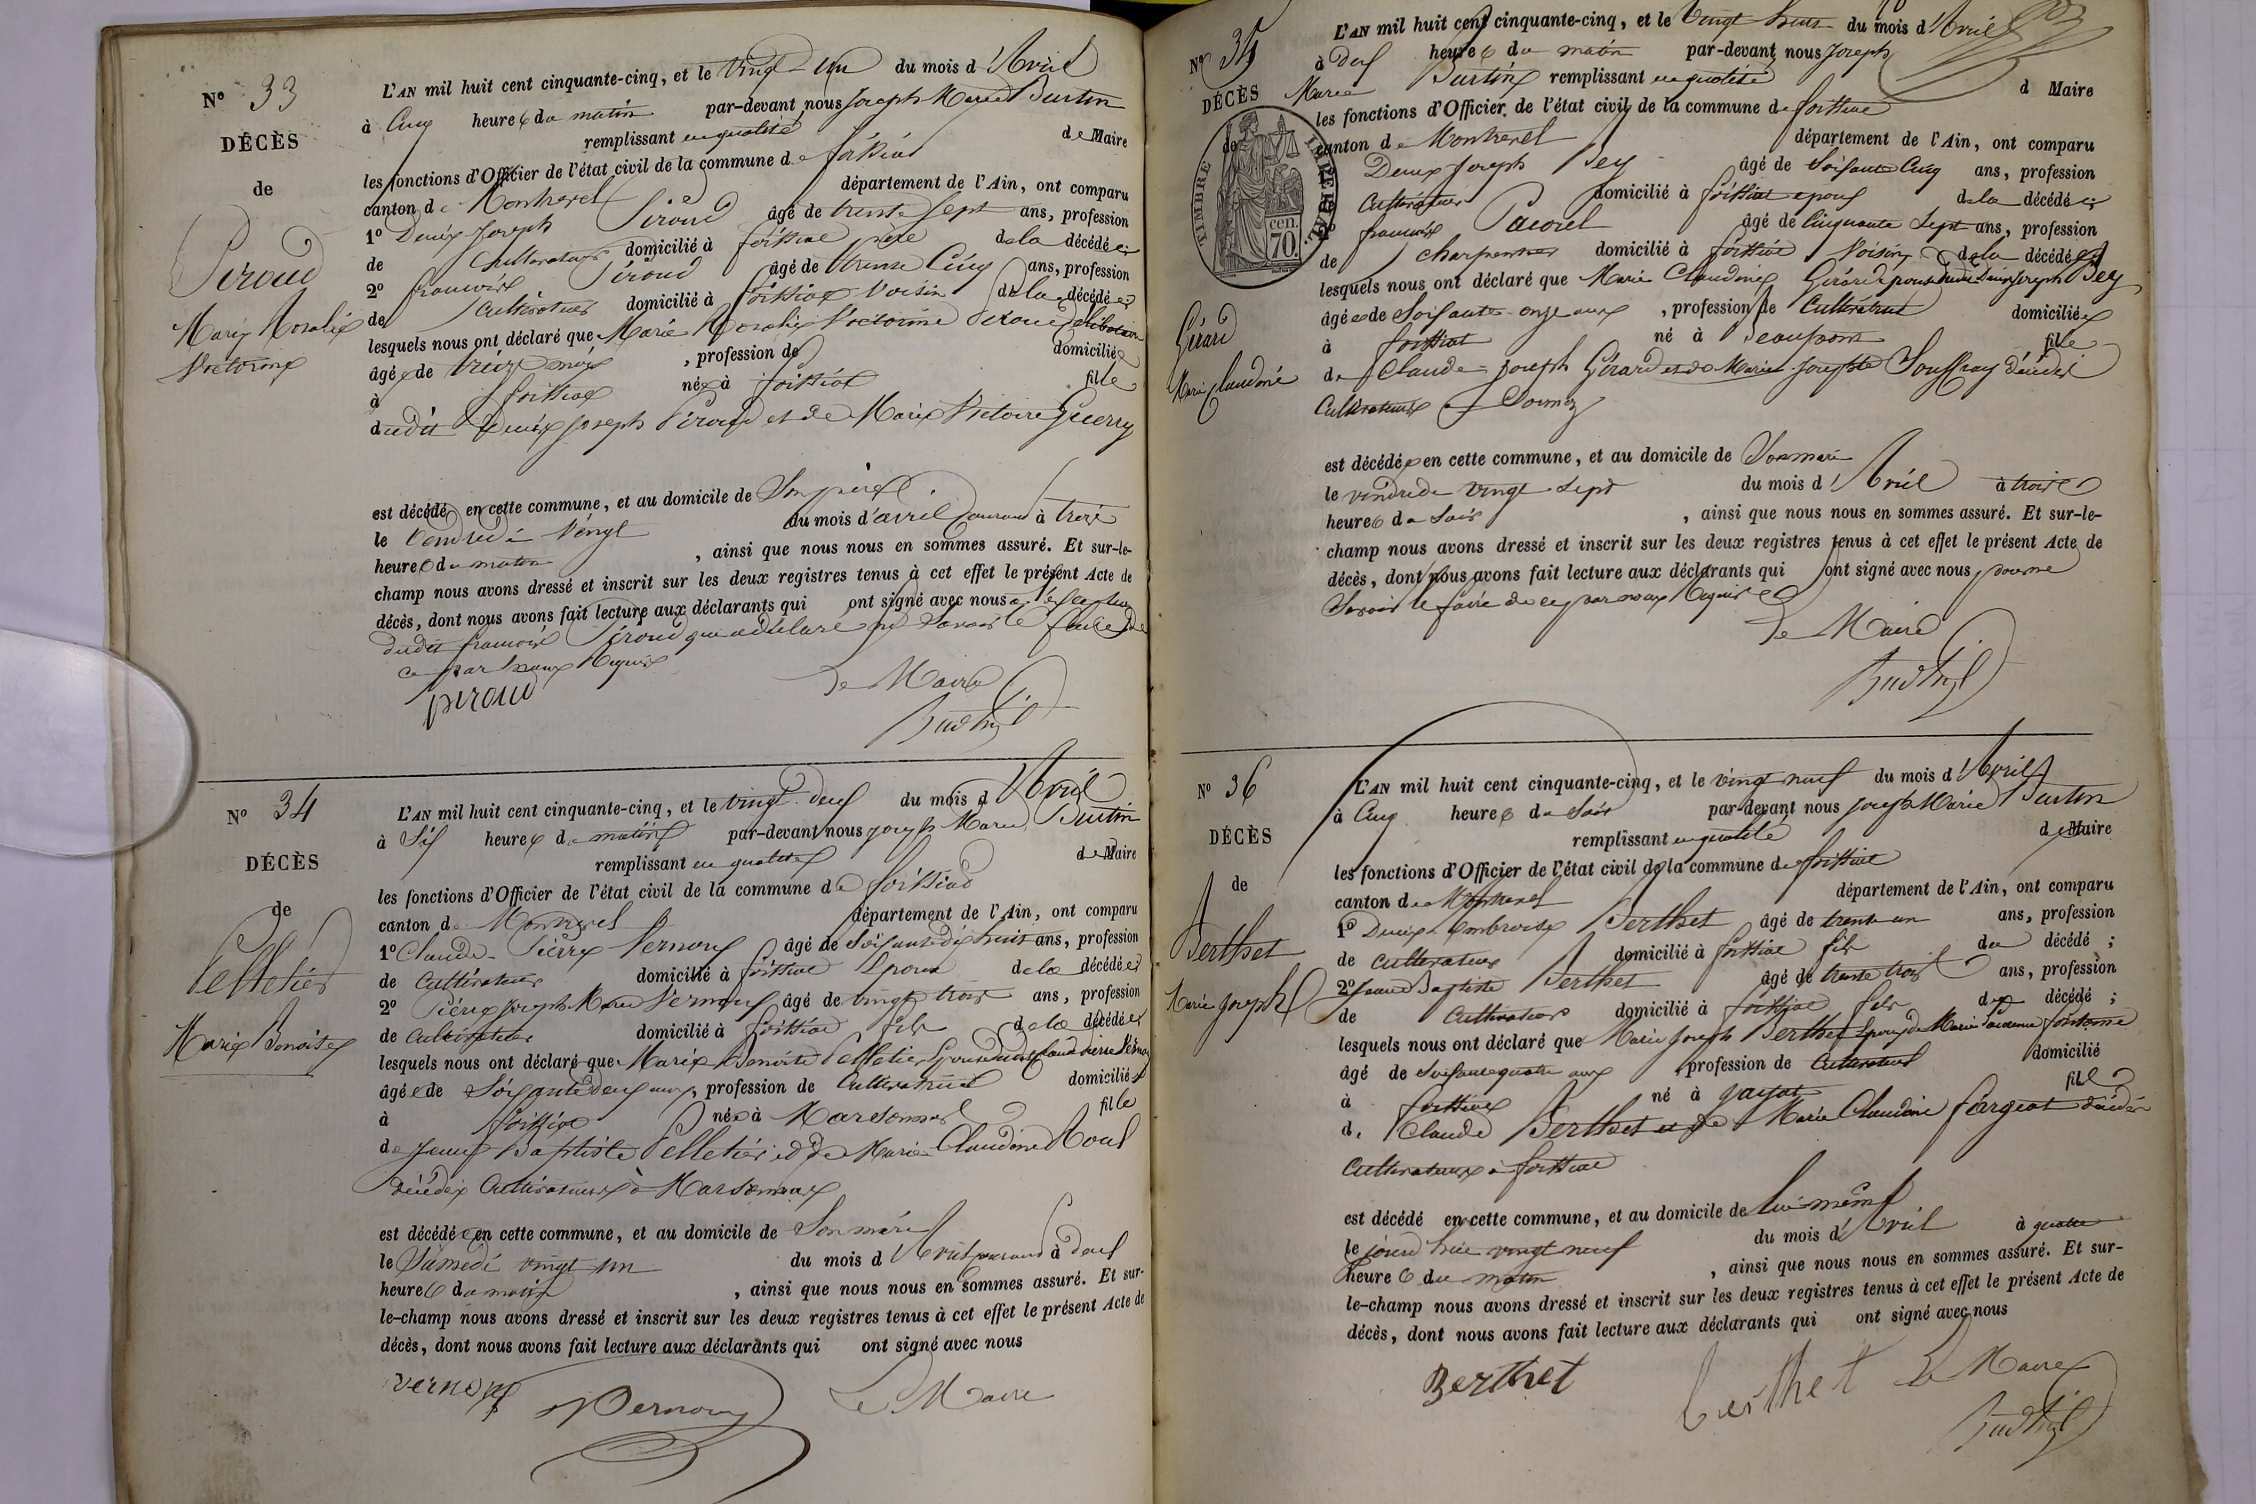 Nº 33
DÉCÈS
de
Piroud
Marie Rosalie
Victorine
L'AN mil huit cent cinquante-cinq, et le vingt-un du mois d'Avril
à Cinq heures du matin par-devant nous Joseph Marie Burtin
remplissant en qualité de Maire
les fonctions d'Officier de l'état civil de la commune de foissiat
canton de Montrevel département de l'Ain, ont comparu
1º Denis Joseph Piroud âgé de trente sept ans, profession
de Cultivateur domicilié à foissiat père de la décédée
2º francois Piroud âgé de trente Cinq ans, profession
de Cultivateur domicilié à foissiat Voisin de la décédée
lesquels nous ont déclaré que Marie Rosalie Victorine Piroud célibataire
âgée de treize mois, profession de domiciliée
à foissiat née à foissiat fille
dudit Denis Joseph Piroud et de Marie Victoire Guerry
est décédé en cette commune, et au domicile de Son père
le Vendredi Vingt du mois d'avril courant à treize
heures du matin, ainsi que nous nous en sommes assuré. Et sur-le-
champ nous avons dressé et inscrit sur les deux registres tenus à cet effet le présent Acte de
décès, dont nous avons fait lecture aux déclarants qui ont signé avec nous a l'exception
dudit francois Piroud qui a déclaré ne Savoir le faire de
ce par nous Requis
piroud Le Maire
Nº 34
DÉCÈS
de
Pelletier
Marie Benoite
L'AN mil huit cent cinquante-cinq, et le vingt-deux du mois d'Avril
à Six heures du matin par-devant nous joseph Marie Burtin
remplissant en qualité de Maire
les fonctions d'Officier de l'état civil de la commune de foissiat
canton de Montrevel département de l'Ain, ont comparu
1º Claude-Pierre Vernoux âgé de Soixante dix huit ans, profession
de Cultivateur domicilié à foissiat Epoux de la décédée
2º Pierre Joseph Marie Vernoux âgé de vingt trois ans, profession
de Cultivateur domicilié à foissiat fils de la décédée
lesquels nous ont déclaré que Marie Benoite Pelletier Epouse dudit Claude Pierre Vernoux
âgée de Soixante deux ans, profession de Cultivatrice domiciliée
à foissiat née à Marsonnas fille
de Jean Baptiste Pelletier et de Marie Claudine Roux
décédés Cultivateurs à Marsonnas
est décédée en cette commune, et au domicile de Son mari
le Samedi vingt un du mois d'Avril courant à deux
heures du matin, ainsi que nous nous en sommes assuré. Et sur-
le-champ nous avons dressé et inscrit sur les deux registres tenus à cet effet le présent Acte de
décès, dont nous avons fait lecture aux déclarants qui ont signé avec nous
vernoux Vernoux Le Maire
Nº 35
DÉCÈS
de
TIMBRE IMPÉRIAL
70 cen.
Girard
Marie Claudine
L'AN mil huit cent cinquante-cinq, et le Vingt huit du mois d'Avril
à Dix heures du matin par-devant nous Joseph
Marie Burtin remplissant en qualité d Maire
les fonctions d'Officier de l'état civil de la commune de foissiat
canton de Montrevel département de l'Ain, ont comparu
Denis Joseph Bey âgé de Soixante Cinq ans, profession
Cultivateur domicilié à foissiat epoux de la décédée
francois Pacoret âgé de Cinquante Sept ans, profession
de charpentier domicilié à foissiat Voisin de la décédée
lesquels nous ont déclaré que Marie Claudine Girard épouse dudit Denis Joseph Bey
âgée de Soixante-onze ans, profession de Cultivatrice domiciliée
à foissiat né à Beaupont fille
de Claude-Joseph Girard et de Marie Josephte Souffray décédés
Cultivateurs à Cormoz
est décédée en cette commune, et au domicile de Son mari
le vendredi vingt-sept du mois d'Avril à trois
heures du Soir, ainsi que nous nous en sommes assuré. Et sur-le-
champ nous avons dressé et inscrit sur les deux registres tenus à cet effet le présent Acte de
décès, dont nous avons fait lecture aux déclarants qui ont signé avec nous pour ne
Savoir le faire de ce par nous Requis
Le Maire
Nº 36
DÉCÈS
de
Berthet
Marie Joseph
L'AN mil huit cent cinquante-cinq, et le vingt neuf du mois d'Avril
à Cinq heures du Soir par-devant nous Joseph Marie Burtin
remplissant en qualité de Maire
les fonctions d'Officier de l'état civil de la commune de foissiat
canton de Montrevel département de l'Ain, ont comparu
1º Denis-Ambroise Berthet âgé de trente-un ans, profession
de Cultivateur domicilié à foissiat fils du décédé;
2º Jean Baptiste Berthet âgé de trente trois ans, profession
de Cultivateur domicilié à foissiat fils du décédé;
lesquels nous ont déclaré que Marie Joseph Berthet Epoux de Marie fontaine
âgé de Soixante quatre ans profession de Cultivateur domicilié
à foissiat né à jayat fils
de Claude Berthet et de Marie Claudine fargeot décédés
Cultivateurs à foissiat
est décédé en cette commune, et au domicile de lui même
le jourd'hui vingt neuf du mois d'Avril à quatre
heures du matin, ainsi que nous nous en sommes assuré. Et sur-
le-champ nous avons dressé et inscrit sur les deux registres tenus à cet effet le présent Acte de
décès, dont nous avons fait lecture aux déclarants qui ont signé avec nous
Berthet berthet Le Maire